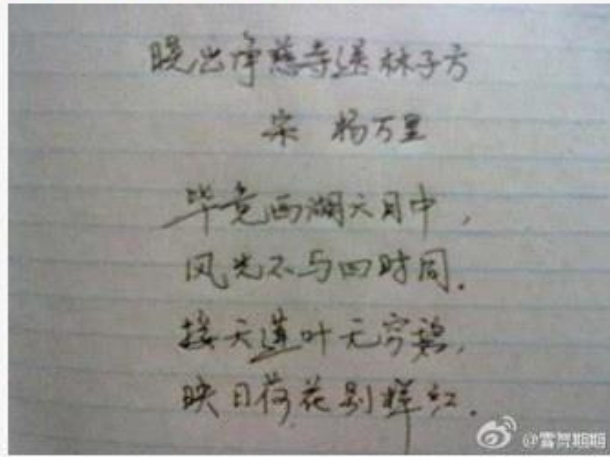 晓出净慈寺送林子方
宋 杨万里
毕竟西湖六月中，
风光不与四时同。
接天莲叶无穷碧，
映日荷花别样红。